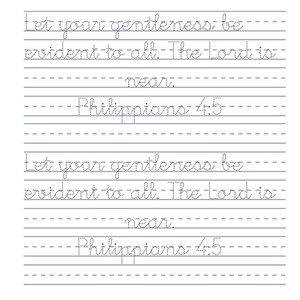 Let your gentleness be
evident to all. The Lord is
near.
Philippians 4:5
Let your gentleness be
evident to all. The Lord is
near.
Philippians 4:5